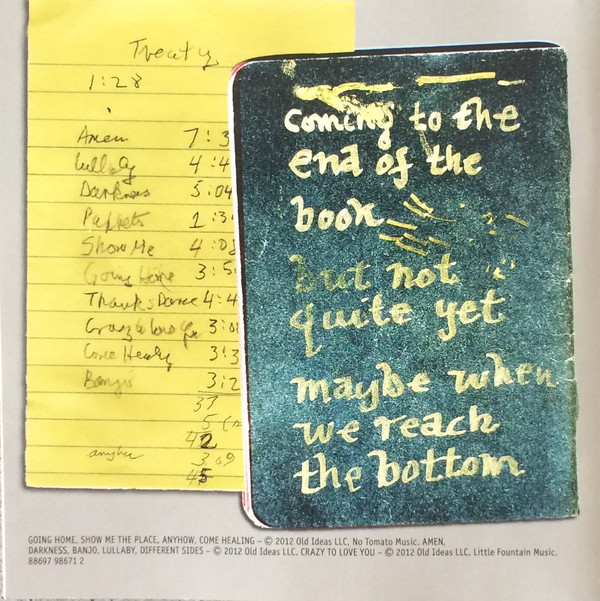 Treaty
1:28
Amen 7:3
Lullaby 4:4
Darkness 5:04
Puppets 1:3
Show Me 4:08
Going Home 3:5
Thanks Dance 4:4
Crazy to love you 3:0
Come Healing 3:3
Banjo 3:2
37
5
42
anyhow 3:09
45
coming to the
end of the
book
but not
quite yet
maybe when
we reach
the bottom
GOING HOME, SHOW ME THE PLACE, ANYHOW, COME HEALING – © 2012 Old Ideas LLC, No Tomato Music. AMEN,
DARKNESS, BANJO, LULLABY, DIFFERENT SIDES – © 2012 Old Ideas LLC. CRAZY TO LOVE YOU – © 2012 Old Ideas LLC, Little Fountain Music.
88697 98671 2